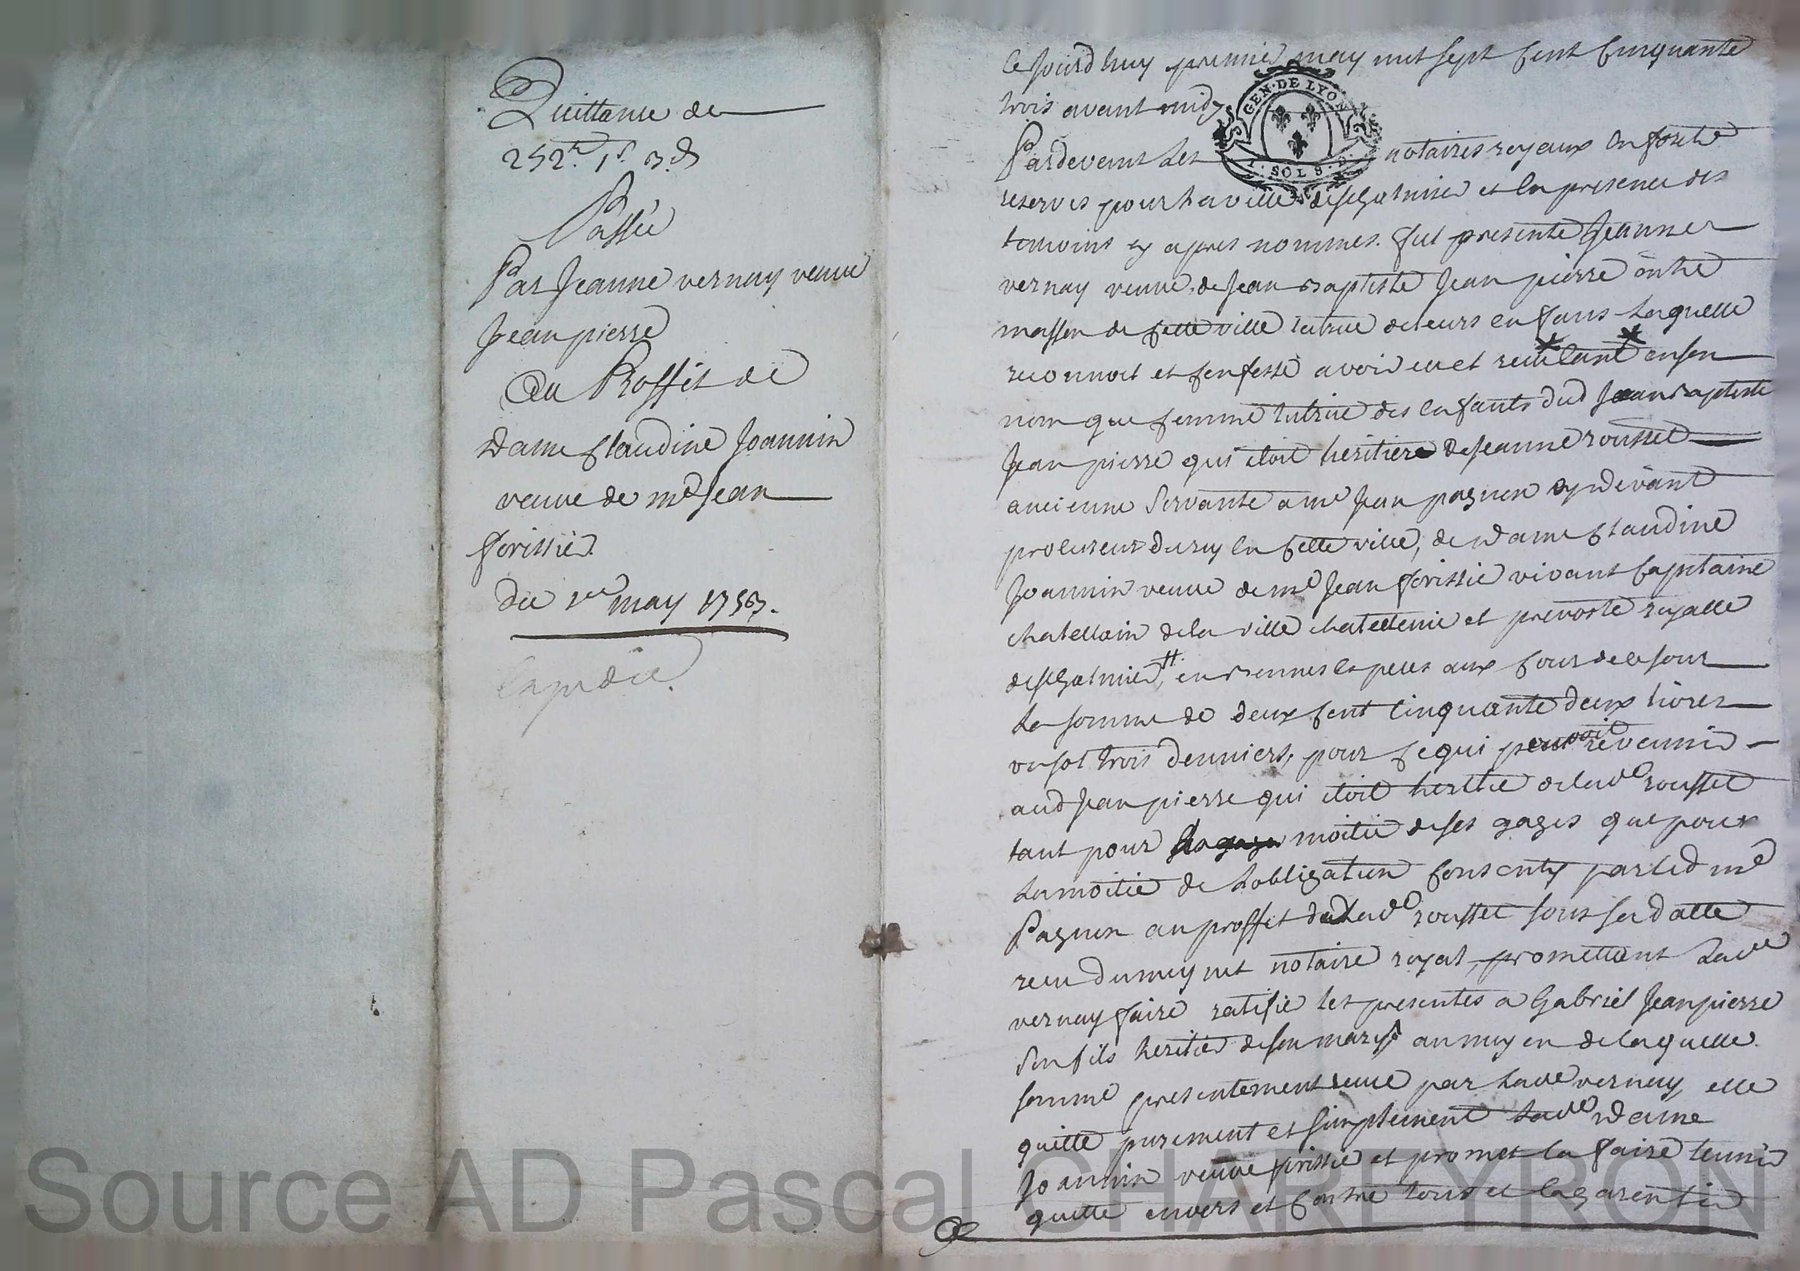 Quittance de
252# 1s 3d
Passée
Par Jeanne vernay veuve
Jean pierre
Au Proffit de
Dame Claudine Joannin
veuve de me Jean
forissier
du 1er may 1753.
Ce jourd huy premier may mil sept cent cinquante
trois avant midy
GEN. DE LYON
1. SOL 8. D.
Pardevant les notaires royaux en forest
reserves pour la ville de st Galmier et en presence des
temoins cy apres nommes. fut presente Jeanne
vernay veuve de Jean Baptiste Jean pierre
masson de cette ville tutrice de leurs enfans laquelle
reconnoit et confesse avoir eu et recu tant en son
nom que comme tutrice des enfants dud Jean Baptiste
Jean pierre qui etoit heritiere de Jeanne roussel
ancienne servante a me Jean pagnon cy devant
procureur du roy en cette ville, de Dame Claudine
Joannin veuve de me Jean forissier vivant Capitaine
chatellain de la ville chatellenie et prevosté royalle
de st Galmier, en bonnes especes aux cours de ce jour
la somme de deux cent cinquante deux livres
un sol trois denniers, pour ce qui pouvoit revenir
aud Jean pierre qui etoit heritié de lade roussel
tant pour moitié de ses gages que pour
la moitié de l obligation consenty par led me
Pagnon au proffit de lade roussel sous sa datte
recu dumeynet notaire royal, promettant lade
vernay faire ratifié les presentes a Gabriel Jean pierre
son fils heritier de son mary au moyen de laquelle
somme presentement recue par lade vernay elle
quitte purement et simplement lade Dame
Joannin veuve forissié et promet la faire tenir
quitte envers et contre tous et la garentir
Source AD Pascal CHAREYRON